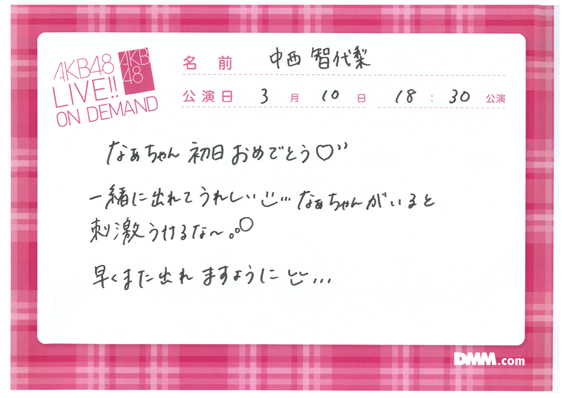 AKB48
LIVE!!
ON DEMAND
AKB
48
名前 中西智代梨
公演日 3月10日 18:30公演
なぁちゃん 初日おめでとう♡
一緒に出れてうれしい なぁちゃんがいると
刺激うけるな〜。
早くまた出れますように
DMM.com